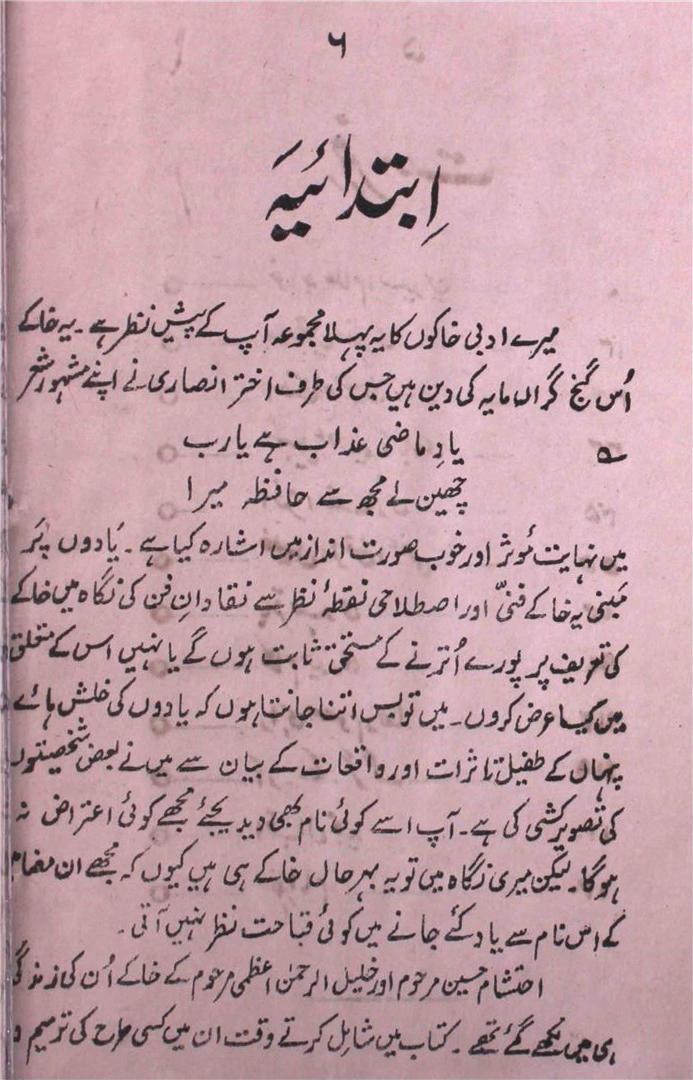 ۶
اِبتدائیَہ
میرے ادبی خاکوں کا یہ پہلا مجموعہ آپ کے پیش نظر ہے۔ یہ خاکے
اُس گنج گراں مایہ کی دین ہیں جس کی طرف اختر انصاری نے اپنے مشہور شعر
؎ یادِ ماضی عذاب ہے یارب
چھین لے مجھ سے حافظہ میرا
میں نہایت مؤثر اور خوب صورت انداز میں اشارہ کیا ہے۔ یادوں پَر
مَبنی یہ خاکے فنیّ اور اصطلاحی نقطۂ نظر سے نقادانِ فن کی نگاہ میں خاکے
کی تعریف پر پورے اُترنے کے مستحق ثابت ہوں گے یا نہیں اس کے متعلق
میں کیا عرض کروں۔ میں تو بس اتنا جانتا ہوں کہ یادوں کی خلش ہائے
پنہاں کے طفیل تاثرات اور واقعات کے بیان سے میں نے بعض شخصیتوں
کی تصویر کشی کی ہے۔ آپ اسے کوئی نام بھی دیدیجئے مجھے کوئی اعتراض نہ
ہوگا۔ لیکن میری نگاہ میں تو یہ بہرحال خاکے ہی ہیں کیوں کہ مجھے ان
کے اس نام سے یاد کئے جانے میں کوئی قباحت نظر نہیں آتی۔
احتشام حسین مرحوم اور خلیل الرحمٰن اعظمی مرحوم کے خاکے اُن کی زندگی
ہی میں لکھے گئے تھے۔ کتاب میں شامل کرتے وقت ان میں کسی طرح کی ترمیم و